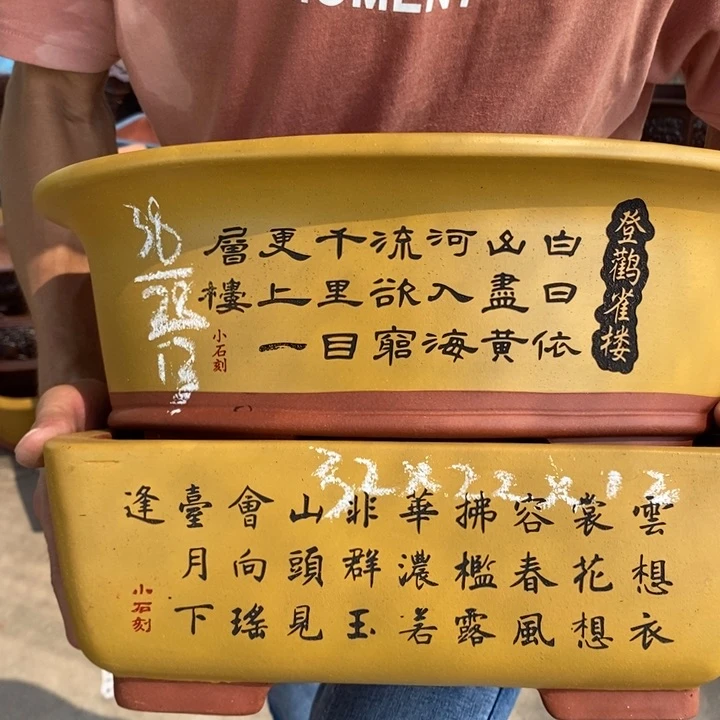 登鹳雀楼
白日依
山盡黄
河入海
流欲窮
千里目
更上一
層樓
小石刻
38
13
32x22x12
雲想衣
裳花想
容春風
拂檻露
華濃若
非群玉
山頭見
會向瑤
臺月下
逢
小石刻